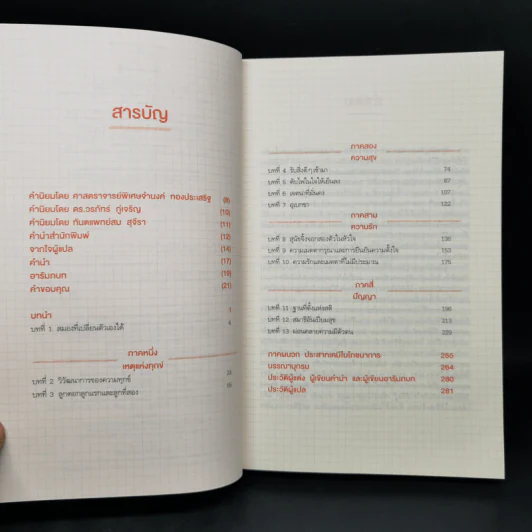 สารบัญ
คำนิยมโดย ศาสตราจารย์พิเศษจำนงค์ ทองประเสริฐ (9)
คำนิยมโดย ดร.วรภัทร์ ภู่เจริญ (10)
คำนิยมโดย ทันตแพทย์สม สุจีรา (11)
คำนำสำนักพิมพ์ (12)
จากใจผู้แปล (14)
คำนำ (17)
อารัมภบท (19)
คำขอบคุณ (21)
บทนำ 1
บทที่ 1 สมองที่เปลี่ยนตัวเองได้ 4
ภาคหนึ่ง
เหตุแห่งทุกข์
บทที่ 2 วิวัฒนาการของความทุกข์
บทที่ 3 ลูกดอกลูกแรกและลูกที่สอง
ภาคสอง
ความสุข
บทที่ 4 รับสิ่งดีๆ เข้ามา 74
บทที่ 5 ดับไฟในใจให้เย็นลง 87
บทที่ 6 เจตนาที่มั่นคง 107
บทที่ 7 อุเบกขา 132
ภาคสาม
ความรัก
บทที่ 8 สุนัขจิ้งจอกสองตัวในหัวใจ
บทที่ 9 ความเมตตากรุณาและการยืนยันความตั้งใจ 153
บทที่ 10 ความรักและเมตตาที่ไม่มีประมาณ 175
ภาคสี่
ปัญญา
บทที่ 11 ฐานที่ตั้งแห่งสติ 198
บทที่ 12 สมาธิอันเปี่ยมสุข 213
บทที่ 13 ผ่อนคลายความมีตัวตน
ภาคผนวก ประสาทเคมีในโภชนาการ 255
บรรณานุกรม 264
ประวัติผู้แต่ง ผู้เขียนคำนำ และผู้เขียนอารัมภบท 280
ประวัติผู้แปล 281